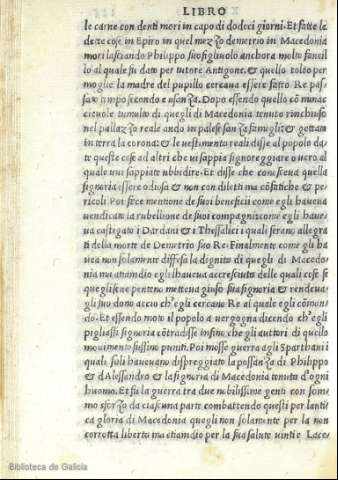 LIBRO
le carne con denti mori in capo di dodeci giorni. Et fatte le
dette cose in Epiro in quel mezzo demetrio in Macedonia
mori lasciando Philippo suo figliuolo anchora molto fanciul
lo al quale fu dato per tutore Antigono, & quello tolto per
moglie la madre del pupillo cercaua essere fatto Re pas
sato tempo secondo e usanza. Dopo essendo quello cō minac
cieuole tumulto di quegli di Macedonia tenuto rinchiuso
nel pallazzo reale ando in palese sanza famigli: & gettan
in terra la corona: & le uestimento reali disse al popolo da
te queste cose ad altri che ui sappia signoreggiare o uero al
quale uui sappiate ubbedire. Et disse che conosceua quella
signoria essere odiosa & non con diletti ma cō fatiche & pe
ricoli. Poi fece mentione de suoi beneficii come egli haueua
uendicato la rubellione de suoi compagni: come egli haue
ua castigato i Dardani & i Thessalici i quali ferano allegra
ti della morte de Demetrio suo Re. Finalmente come egli ha
uea non solamente diffesa la dignita di quegli di Macedo
nia ma etiamdio egli haueua accresciuto delle quali cose se
quegli sene pentino metteua giuso sua signoria & rendeua
gli suo dono accio ch'egli cercano Re al quale egli cōmon
do. Et essendo moto il popolo a uergogna dicendo ch'egli
pigliassi signoria cōtradisse infino che gli auttori di quello
mouimento fussino puniti. Poi mosse guerra agli Sparthani i
quali soli haueuano dispreggiato la possanza di Philippo
& d Alessandro & la signoria di Macedonia tenuta d'ogni
huomo. Et fu la guerra tra due nobilissime genti con som
mo sforzo da ciascuna parte combattendo questi per lanti
ca gloria di Macedonia quegli non solamente per la non
corrotta liberta ma etiamdio per sua salute uinti e Lace
Biblioteca de Galicia